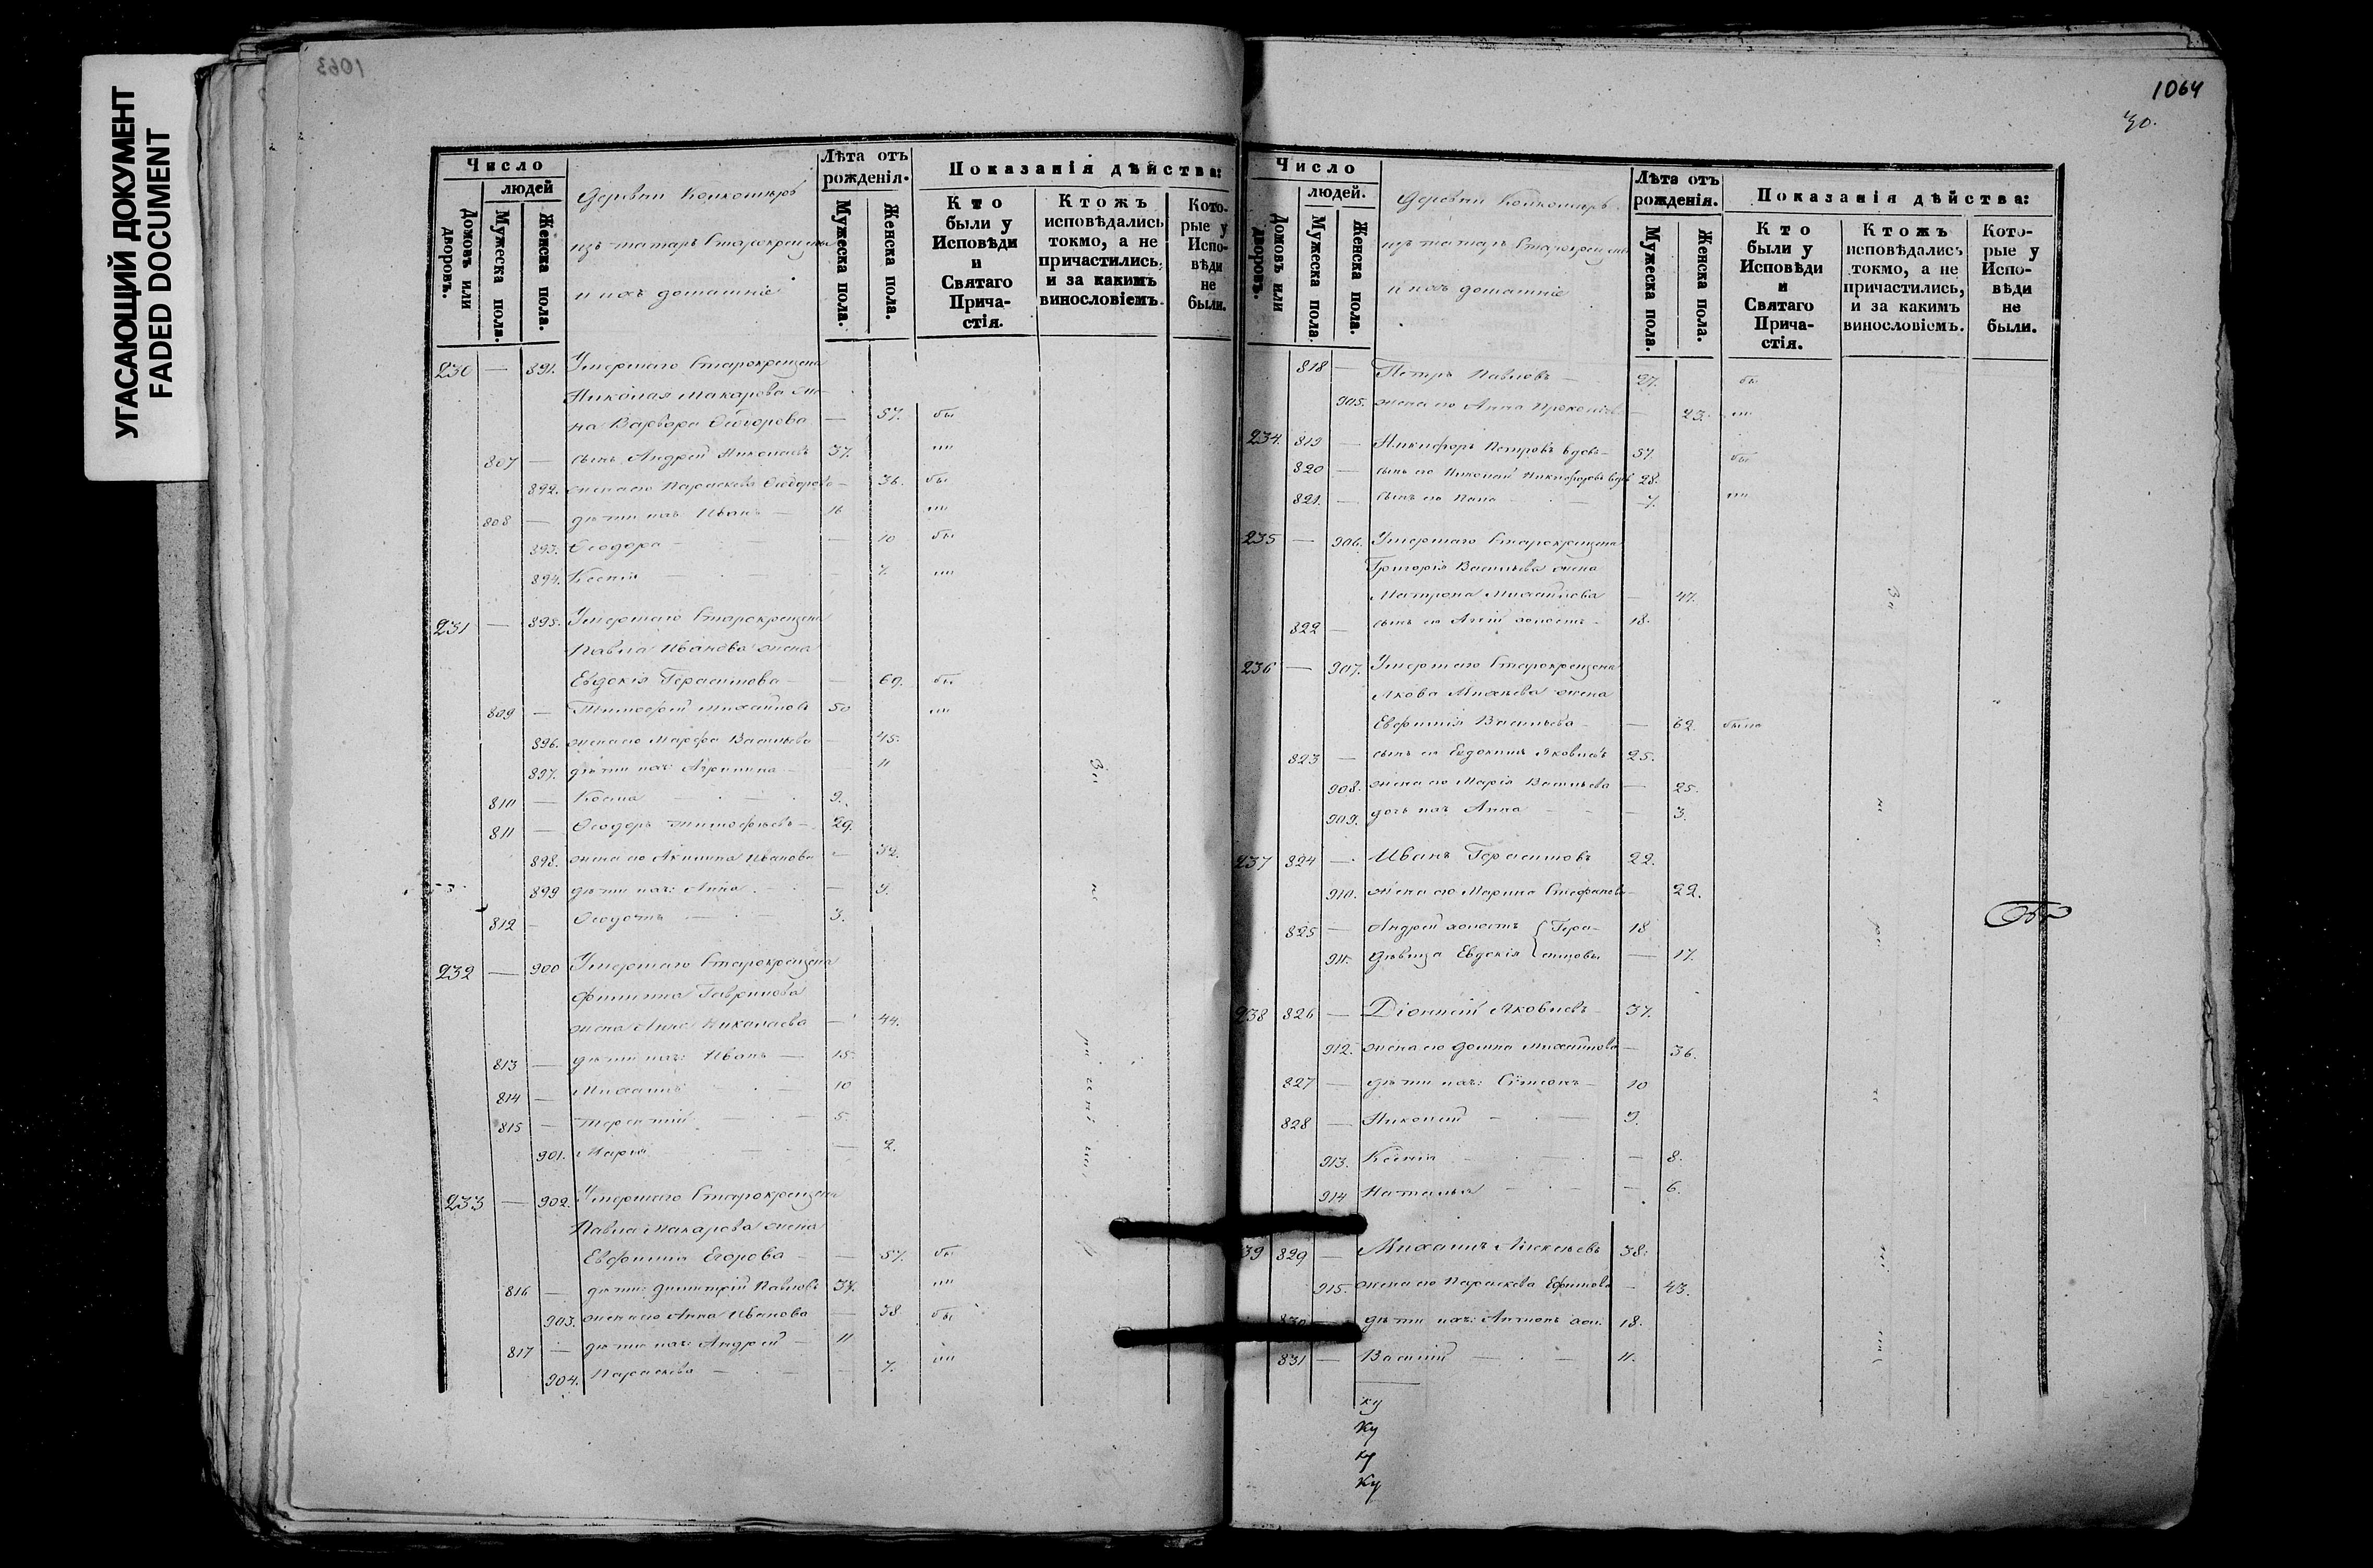 УГАСАЮЩИЙ ДОКУМЕНТ
FADED DOCUMENT
1063
Число
людей
Домовъ или дворовъ.
Мужеска пола.
Женска пола.
Деревни
изъ татаръ Старокрещены
и ихъ домашніе
Лѣта отъ рожденія.
Мужеска пола.
Женска пола.
Показанія дѣйства:
Кто были у Исповѣди и Святаго Причастія.
Ктожъ исповѣдались токмо, а не причастились, и за какимъ винословіемъ.
Которые у Исповѣди не были.
230 — 891. Умершаго Старокрещена
Николая Макарова же
на Варвара Ѳеодорова — 57. бы
807 — сынъ Андрей Николаевъ 37. ""
892. жена его Параскева Ѳеодорова — 36. бы
808 — дѣти ихъ: Иванъ — 16 ""
893. Ѳеодора — — 10 бы
894. Ксенія — 7. ""
231 — 895. Умершаго Старокрещена
Павла Иванова жена
Евдокія Герасимова — 69. бы
809 — Тимоѳей Михайловъ 50 ""
896. жена его Марѳа Васильева — 45.
897. дѣти ихъ: — 11
810 — Косма — 9.
811 — Ѳеодоръ Тимоѳеевъ — 29.
898. жена его Акилина Иванова — 32.
899 дѣти ихъ: Анна — 9.
812 — Ѳеодотъ — 3.
232 — 900 Умершаго Старокрещена
Филиппа Гаврилова
жена Анна Николаева — 44.
813 — дѣти ихъ: Иванъ — 15.
814 — Михаилъ — 10
815 — Терентій — 5.
901. Марія — 2.
233 — 902. Умершаго Старокрещена
Павла Макарова жена
Евфимія Егорова — 57. бы
816 — дѣти: Димитрій Павловъ 37. ""
903. жена его Анна Иванова — 38 бы
817 — дѣти ихъ: Андрей — 11
904. Параскева — 7. ""
За
не
1064
30.
Число
людей.
Домовъ или дворовъ.
Мужеска пола.
Женска пола.
Деревни
изъ татаръ Старокрещены
и ихъ домашніе
Лѣта отъ рожденія.
Мужеска пола.
Женска пола.
Показанія дѣйства:
Кто были у Исповѣди и Святаго Причастія.
Ктожъ исповѣдались токмо, а не причастились, и за какимъ винословіемъ.
Которые у Исповѣди не были.
818 — Петръ Павловъ — 27. бы
905. жена его Анна Прокопіева — 23. ""
234. 819 — Никифоръ Петровъ вдовъ — 57. бы
820 — сынъ его Николай Никифоровъ вдовъ 28.
821. — сынъ его — 7. ""
235 — 906. Умершаго Старокрещена
Григорія Васильева жена
Матрона Михайлова — 47.
822 — сынъ ея холостъ — 18.
236 — 907. Умершаго Старокрещена
Якова Михеева жена
Евфимія Васильева — 62. была
823 — сынъ ея Евдокимъ Яковлевъ 25.
908. жена его Марія Васильева — 25.
909. дочь ихъ Анна — 3.
237 824 — Иванъ Герасимовъ 22.
910. жена его Марина Стефанова — 22.
825 — Андрей холостъ { Гера- 18
911. дѣвица Евдокія { симовы — 17.
238 826 — Діонисій Яковлевъ 37.
912. жена его Домна Михайлова — 36.
827 — дѣти ихъ: Симеонъ — 10
828 — Николай — 9.
913. Ксенія — 8.
914 Наталья — 6.
39 829 — Михаилъ Алексѣевъ 38.
915. жена его Параскева Ефимова — 43.
830 — дѣти ихъ: Антонъ хол. 18.
831 — Василій — 11.
За
не
ку
ку
ку
ку